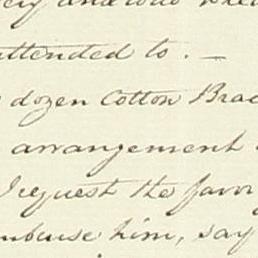 attended to. —
dozen Cotton Brac
arrangement
I request the favor
mburse him, say